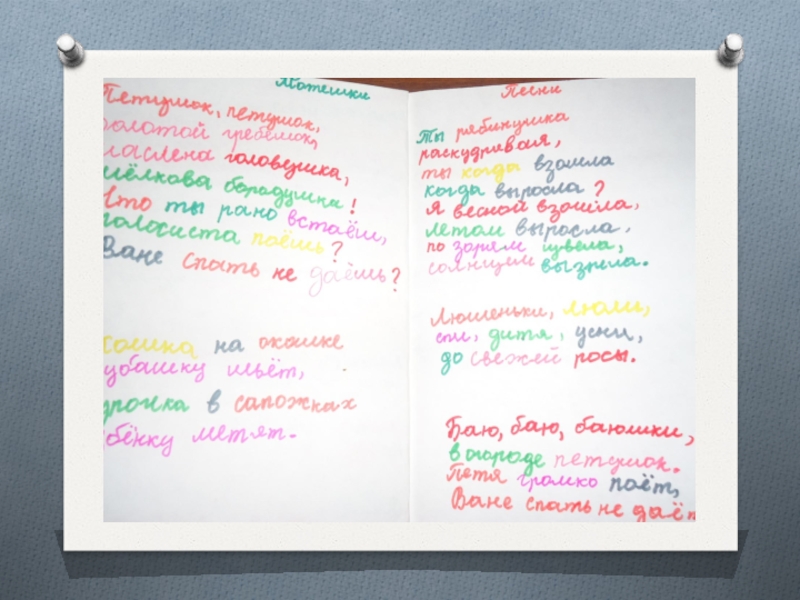 Потешки
Петушок, петушок,
золотой гребешок,
маслена головушка,
шёлкова бородушка!
Что ты рано встаёшь,
голосиста поёшь?
Ване спать не даёшь?
кошка на окошке
убашку шьёт,
урочка в сапожках
бёнку метят.
Песни
Ты рябинушка
раскудрявая,
ты когда взошла
когда выросла?
Я весной взошла,
летом выросла,
по зорям цвела,
солнцем вызрела.
Люшеньки, люли,
спи, дитя, усни,
до свежей росы.
Баю, баю, баюшки,
в огороде петушок.
Петя громко поёт,
Ване спать не даёт